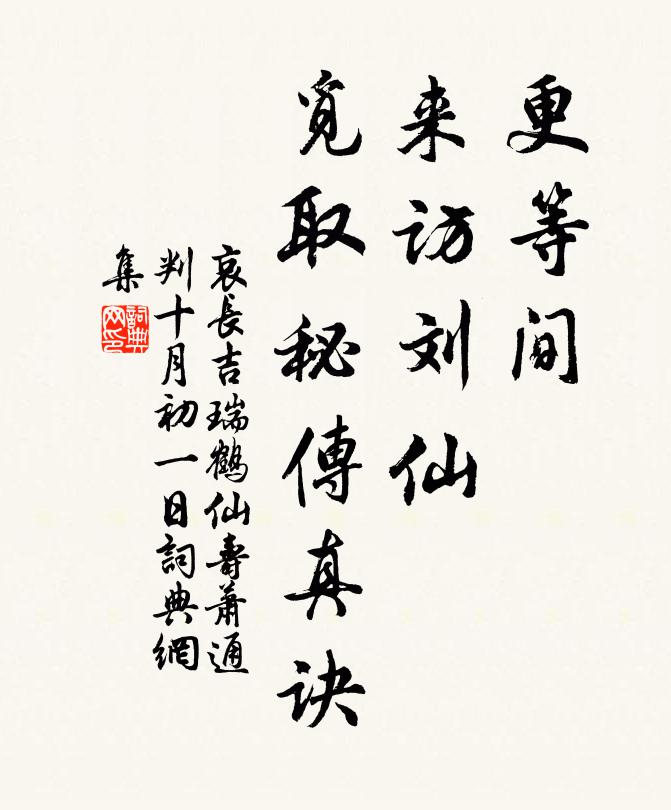 更等閒
来访刘仙
覓取秘傳真诀
哀長吉瑞鶴仙壽蕭通
判十月初一日詞典網
集
詞典
网印